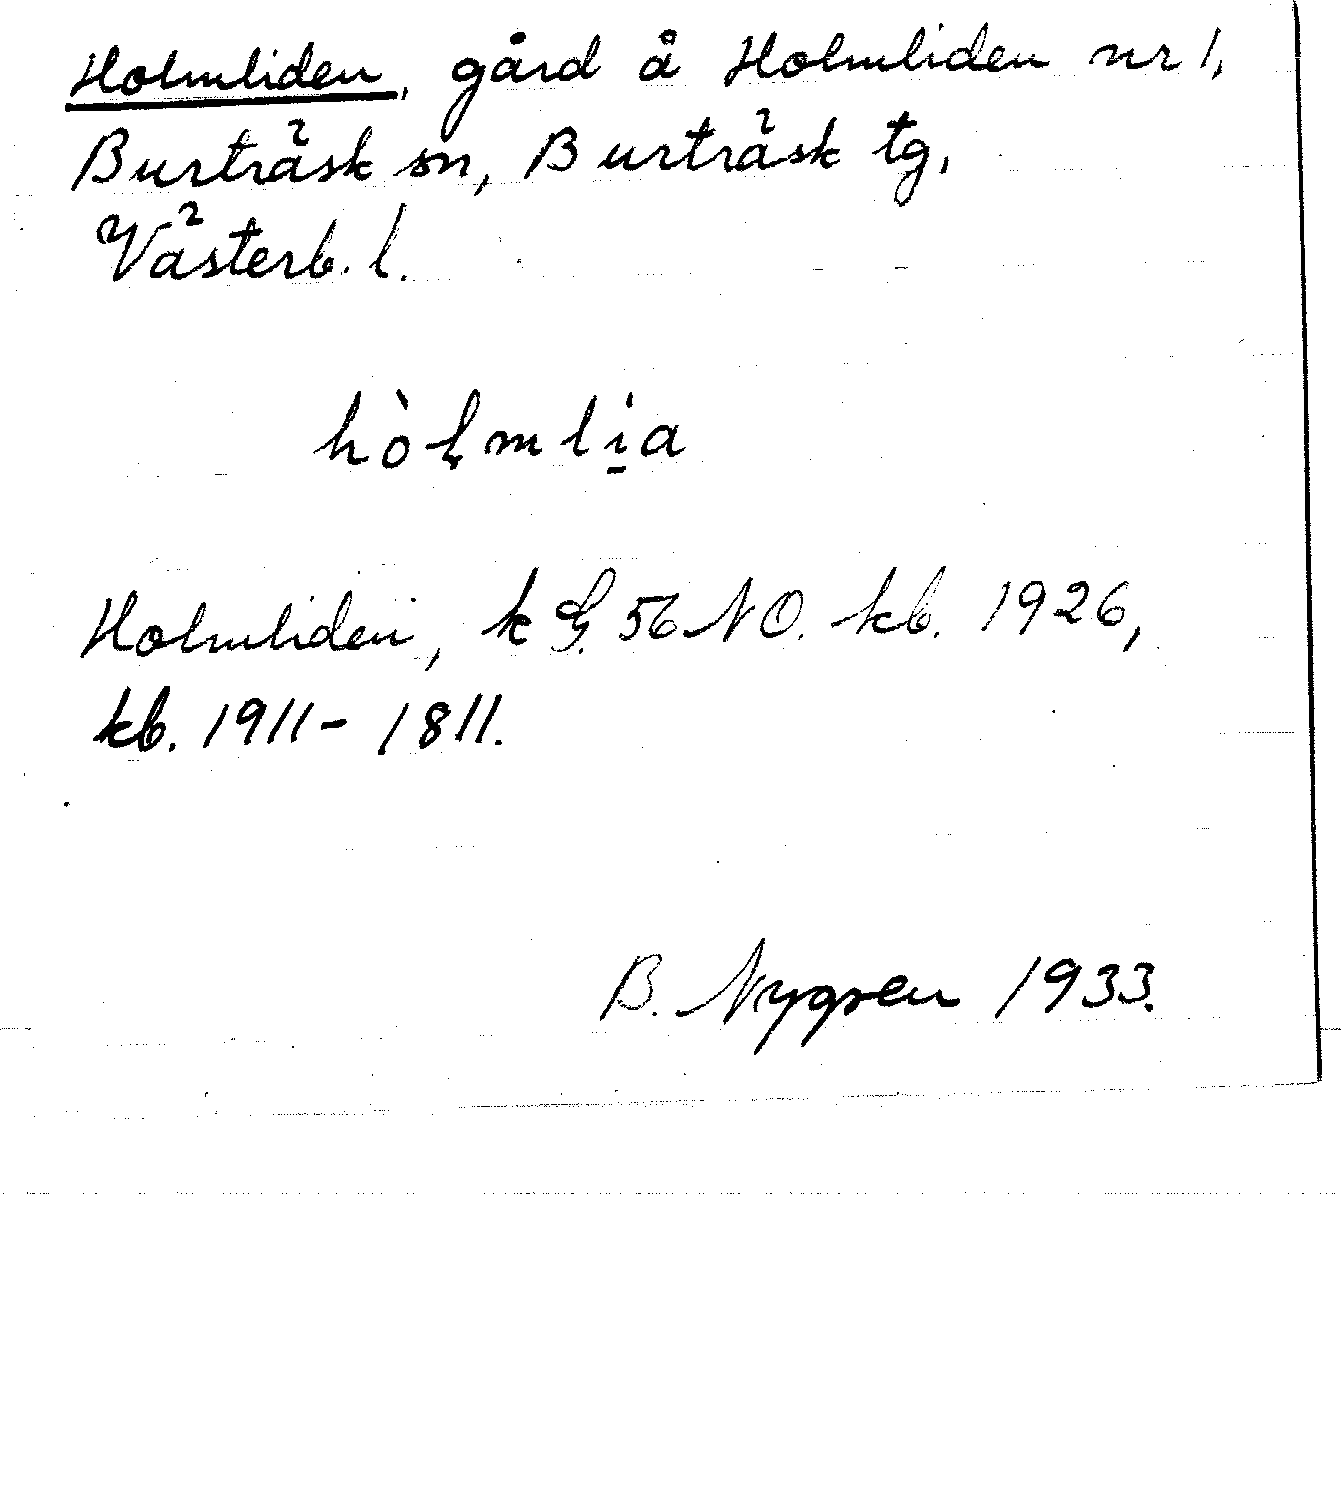 Holmliden, gård å Holmliden nr 1,
Burträsk sn, Burträsk tg,
Västerb. l.
hòłmli̱a
Holmliden, k G. 56 NO. kb. 1926,
kb. 1911 - 1811.
B. Nygren 1933.